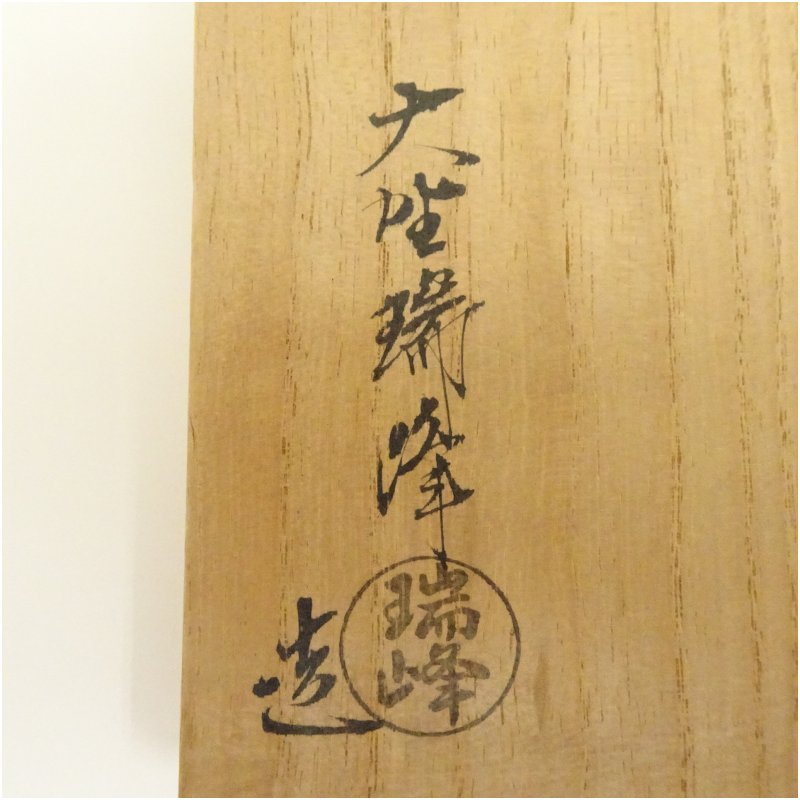 大埜瑞峰
造
瑞峰